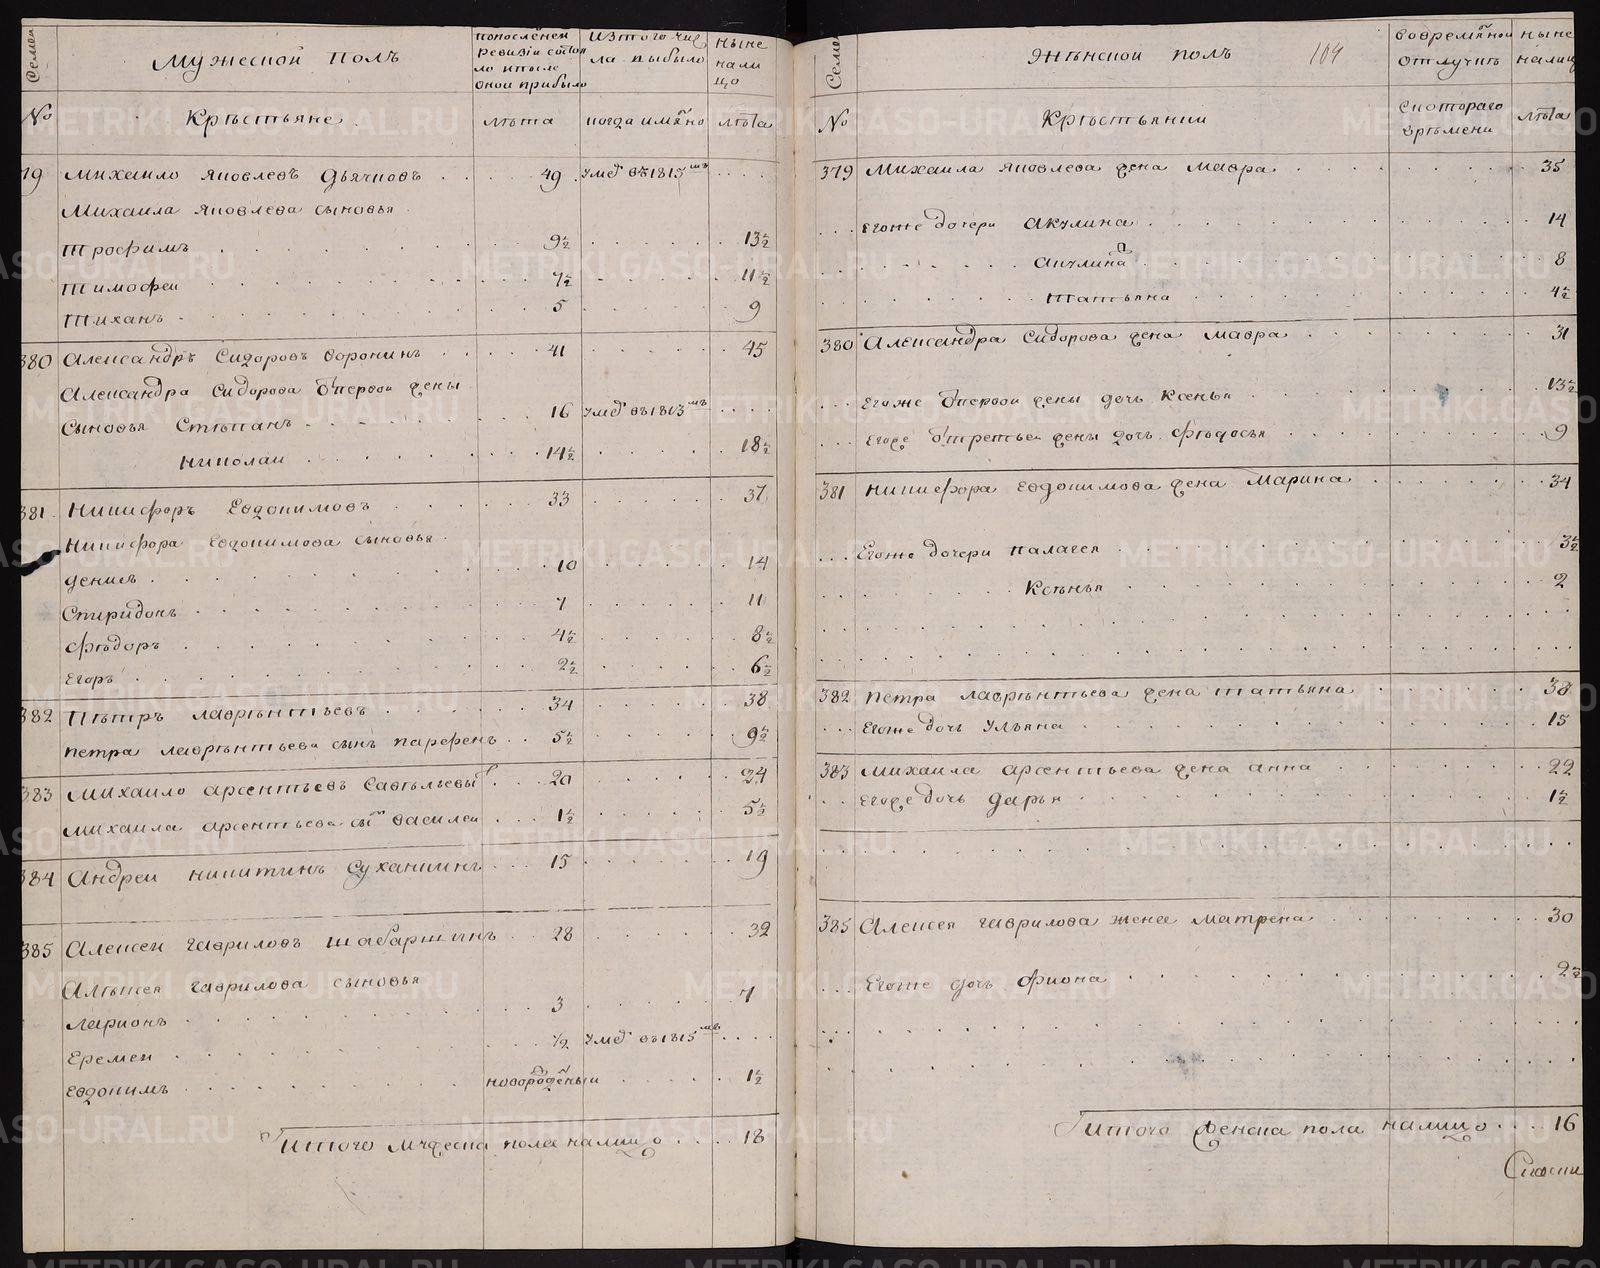 Семеи
Мужескои Полъ
попоследнеи ревизии состояло ипосле онои прибыло
Изтого числа выбыло
ныне налицо
№
Крѣстьяне
лѣта
когда имянно
лѣта
19 Михаило Яковлевъ Дьячковъ 49 умеръ въ 1815мъ
Михаила Яковлева сыновья
Трофимъ 9½ 13½
Тимофеи 7½ 11½
Тиханъ 5 9
380 Александръ Сидоровъ Воронинъ 41 45
Александра Сидорова Отпервои жены
Сыновья Стѣпанъ 16 умеръ въ 1813мъ
Николаи 14½ 18½
381 Никифоръ Евдокимовъ 33 37
Никифора Евдокимова сыновья
Денисъ 10 14
Спиридонъ 7 11
Фѣдоръ 4½ 8½
Егоръ 2½ 6½
382 Пѣтръ Лаврѣнтьевъ 34 38
Петра Лаврѣнтьева сынъ Парфенъ 5½ 9½
383 Михаило Арсентьевъ Савѣльевыъ 20 24
Михаила Арсентьева сынъ Василеи 1½ 5½
384 Андреи Никитинъ Суханкинъ 15 19
385 Алексеи Гавриловъ Шабаршинъ 28 32
Алѣксея Гаврилова сыновья
Ларионъ 3 7
Еремеи ½ умеръ въ 1815мъ
Евдокимъ новорожденыи 1½
Итого мужеска пола налицо 18
Семеи
Жѣнскои полъ
104
Вовременнои отлучкѣ
ныне налицо
№
Крѣстьянки
Скотораго врѣмени
лѣта
379 Михаила Яковлева жена Мавра 35
Егоже дочери Акулина 14
Акулина 8
Татьяна 4½
380 Александра Сидорова жена Мавра 31
Егоже Отпервои жены дочь Ксенья 13½
Егоже Оттретьеи жены дочь Фѣдосья 9
381 Никифора Евдокимова жена Марина 34
Егоже дочери Палагея 3½
Ксѣнья 2
382 Петра Лаврѣнтьева жена Татьяна 38
Егоже дочь Ульяна 15
383 Михаила Арсентьева жена Анна 22
Егоже дочь Дарья 1½
385 Алексея Гаврилова жена Матрена 30
Егоже дочь Фиона 2½
Итого женска пола налицо 16
METRIKI.GASO-URAL.RU